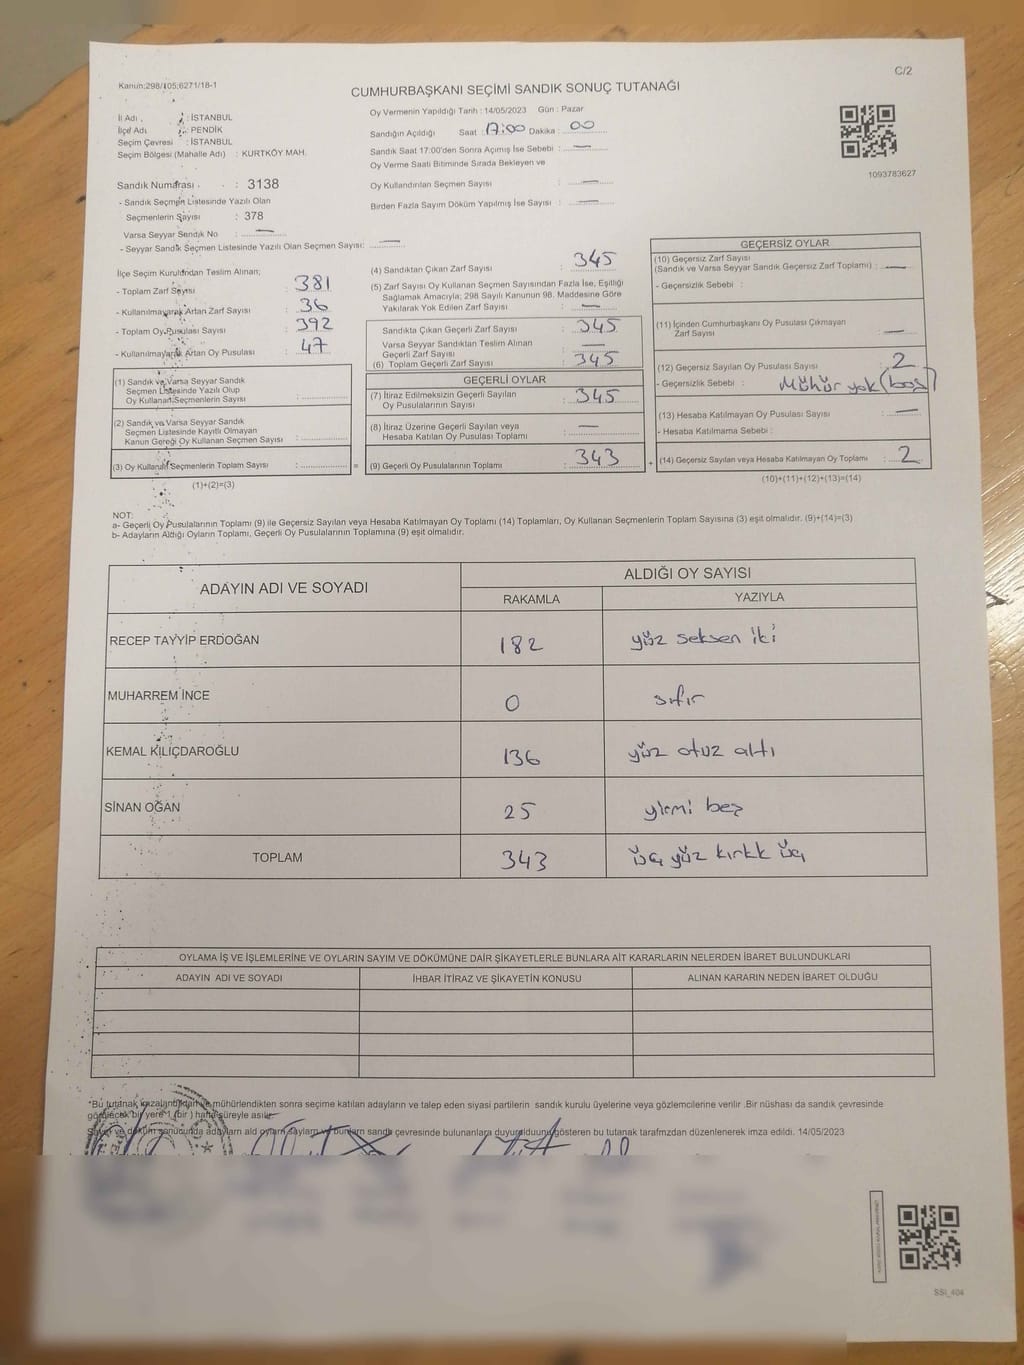 C/2
Kanun:298/105;6271/18-1
CUMHURBAŞKANI SEÇİMİ SANDIK SONUÇ TUTANAĞI
İl Adı : İSTANBUL
İlçe Adı : PENDİK
Seçim Çevresi : İSTANBUL
Seçim Bölgesi (Mahalle Adı) : KURTKÖY MAH.
Oy Vermenin Yapıldığı Tarih : 14/05/2023 Gün : Pazar
Sandığın Açıldığı Saat : 17:00 Dakika : 00
Sandık Saat 17:00'den Sonra Açımış İse Sebebi : —
Oy Verme Saati Bitiminde Sırada Bekleyen ve
Oy Kullandırılan Seçmen Sayısı : —
Birden Fazla Sayım Döküm Yapılmış İse Sayısı : —
1093783627
Sandık Numarası : 3138
- Sandık Seçmen Listesinde Yazılı Olan
Seçmenlerin Sayısı : 378
Varsa Seyyar Sandık No : —
- Seyyar Sandık Seçmen Listesinde Yazılı Olan Seçmen Sayısı: —
İlçe Seçim Kurulundan Teslim Alınan;
- Toplam Zarf Sayısı : 381
- Kullanılmayarak Artan Zarf Sayısı : 36
- Toplam Oy Pusulası Sayısı : 392
- Kullanılmayarak Artan Oy Pusulası : 47
(1) Sandık ve Varsa Seyyar Sandık
Seçmen Listesinde Yazılı Olup
Oy Kullanan Seçmenlerin Sayısı :
(2) Sandık ve Varsa Seyyar Sandık
Seçmen Listesinde Kayıtlı Olmayan
Kanun Gereği Oy Kullanan Seçmen Sayısı :
(3) Oy Kullanan Seçmenlerin Toplam Sayısı : =
(1)+(2)=(3)
(4) Sandıktan Çıkan Zarf Sayısı : 345
(5) Zarf Sayısı Oy Kullanan Seçmen Sayısından Fazla İse, Eşitliği
Sağlamak Amacıyla; 298 Sayılı Kanunun 98. Maddesine Göre
Yakılarak Yok Edilen Zarf Sayısı : —
Sandıkta Çıkan Geçerli Zarf Sayısı : 345
Varsa Seyyar Sandıktan Teslim Alınan
Geçerli Zarf Sayısı : —
(6) Toplam Geçerli Zarf Sayısı : 345
GEÇERLİ OYLAR
(7) İtiraz Edilmeksizin Geçerli Sayılan
Oy Pusulalarının Sayısı : 345
(8) İtiraz Üzerine Geçerli Sayılan veya
Hesaba Katılan Oy Pusulası Toplamı : —
(9) Geçerli Oy Pusulalarının Toplamı : 343 +
GEÇERSİZ OYLAR
(10) Geçersiz Zarf Sayısı
(Sandık ve Varsa Seyyar Sandık Geçersiz Zarf Toplamı) : —
- Geçersizlik Sebebi :
(11) İçinden Cumhurbaşkanı Oy Pusulası Çıkmayan
Zarf Sayısı : —
(12) Geçersiz Sayılan Oy Pusulası Sayısı : 2
- Geçersizlik Sebebi : Mühür yok (boş)
(13) Hesaba Katılmayan Oy Pusulası Sayısı : —
- Hesaba Katılmama Sebebi :
(14) Geçersiz Sayılan veya Hesaba Katılmayan Oy Toplamı : 2
(10)+(11)+(12)+(13)=(14)
NOT:
a- Geçerli Oy Pusulalarının Toplamı (9) ile Geçersiz Sayılan veya Hesaba Katılmayan Oy Toplamı (14) Toplamları, Oy Kullanan Seçmenlerin Toplam Sayısına (3) eşit olmalıdır. (9)+(14)=(3)
b- Adayların Aldığı Oyların Toplamı, Geçerli Oy Pusulalarının Toplamına (9) eşit olmalıdır.
ADAYIN ADI VE SOYADI ALDIĞI OY SAYISI
RAKAMLA YAZIYLA
RECEP TAYYİP ERDOĞAN 182 yüz seksen iki
MUHARREM İNCE 0 sıfır
KEMAL KILIÇDAROĞLU 136 yüz otuz altı
SİNAN OĞAN 25 yirmi beş
TOPLAM 343 üç yüz kırkk üç
OYLAMA İŞ VE İŞLEMLERİNE VE OYLARIN SAYIM VE DÖKÜMÜNE DAİR ŞİKAYETLERLE BUNLARA AİT KARARLARIN NELERDEN İBARET BULUNDUKLARI
ADAYIN ADI VE SOYADI İHBAR İTİRAZ VE ŞİKAYETİN KONUSU ALINAN KARARIN NEDEN İBARET OLDUĞU
*Bu tutanak imzalandıktan ve mühürlendikten sonra seçime katılan adayların ve talep eden siyasi partilerin sandık kurulu üyelerine veya gözlemcilerine verilir .Bir nüshası da sandık çevresinde
görülecek bir yere 1 (bir ) hafta süreyle asılır.
Sayım ve döküm sonucunda adayların ald oyların saylarn ve bunların sandk çevresinde bulunanlara duyurulduunu gösteren bu tutanak tarafmzdan düzenlenerek imza edildi. 14/05/2023
SSİ_404